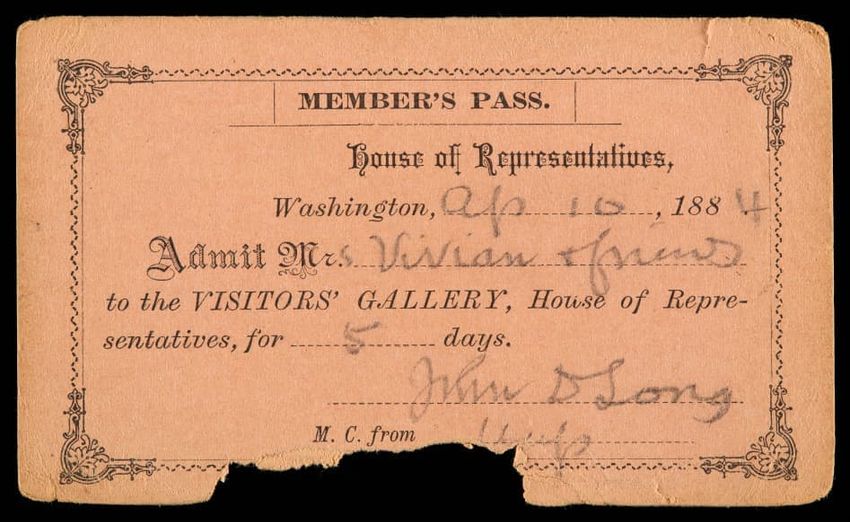 MEMBER'S PASS.
House of Representatives,
Washington, Ap 10, 1884
Admit Mrs Vivian & friend
to the VISITORS' GALLERY, House of Repre-
sentatives, for 5 days.
John D Long
M. C. from